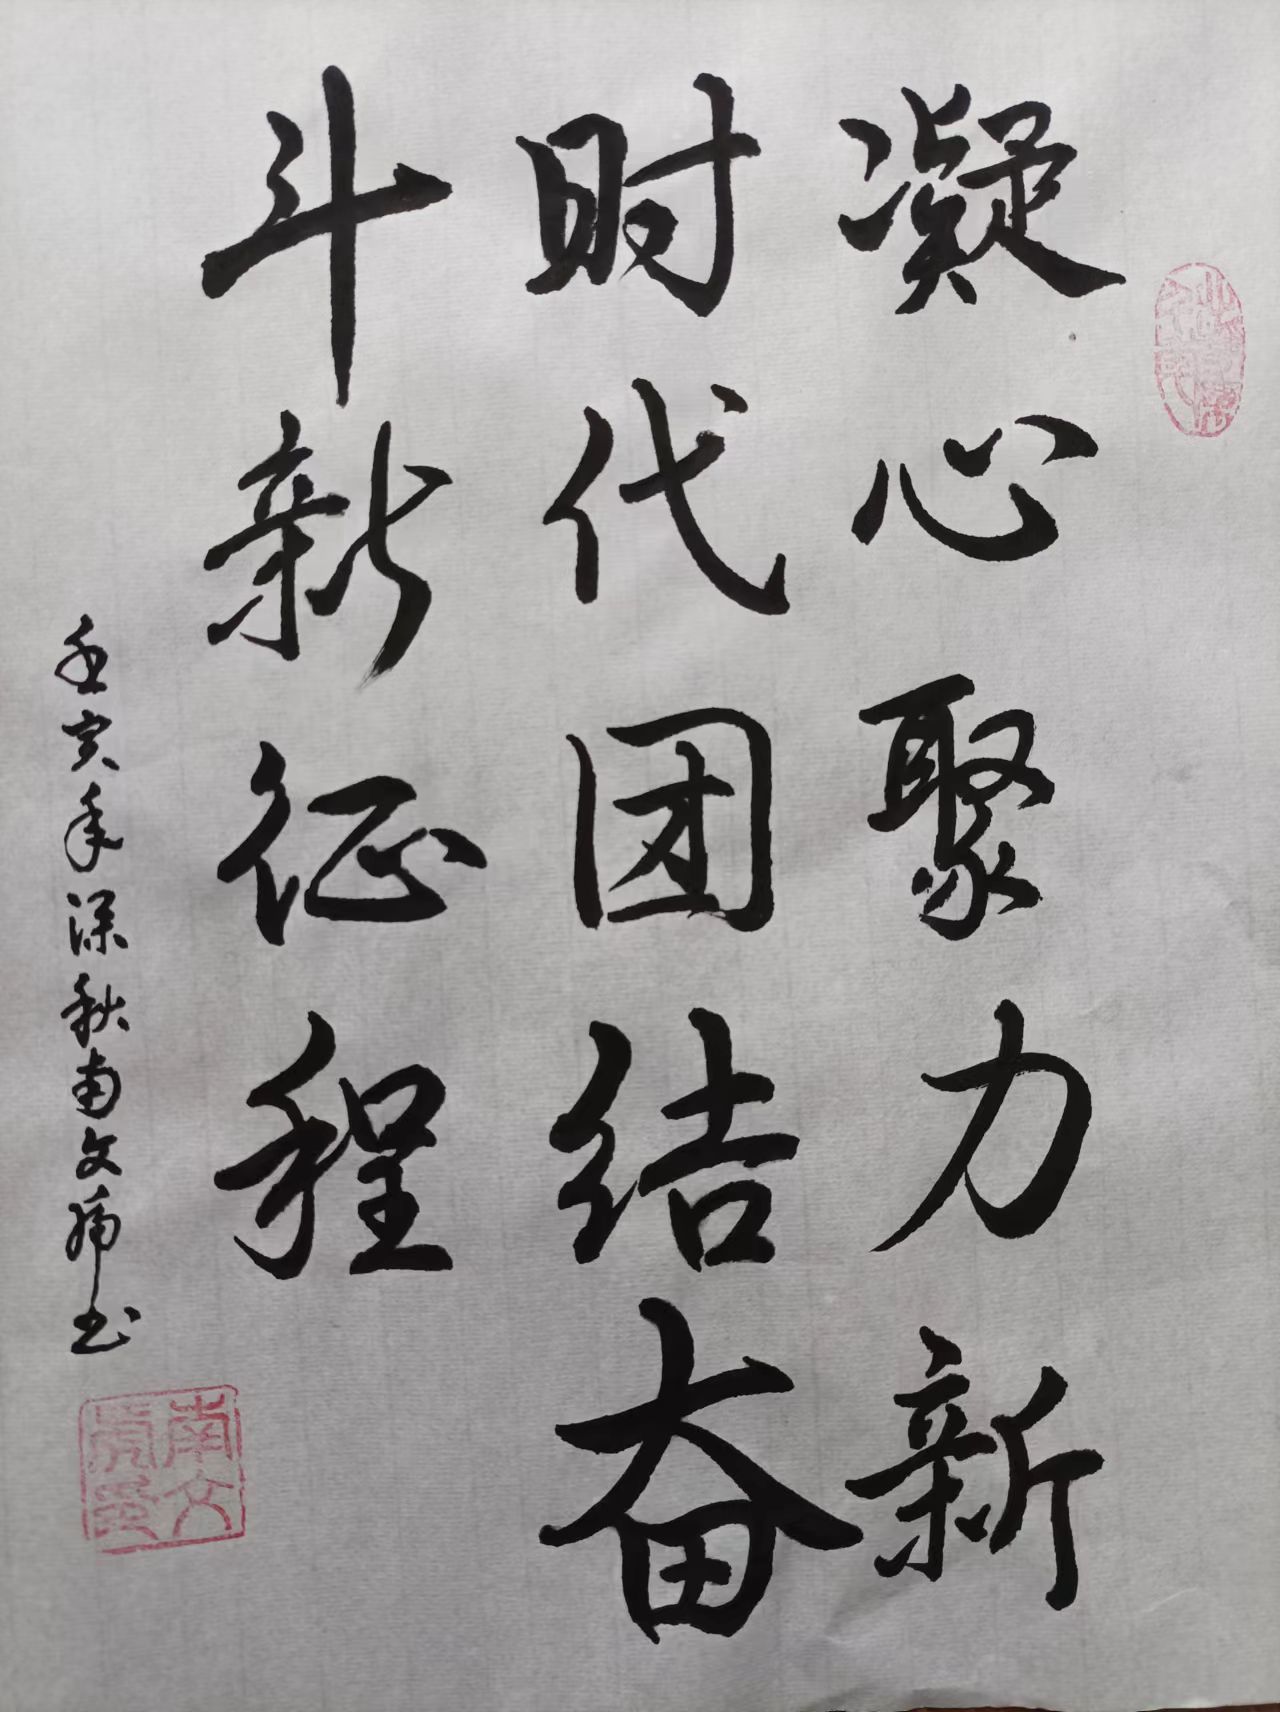 凝心聚力新
时代团结奋
斗新征程
壬寅年深秋南文虎书
南文
虎印